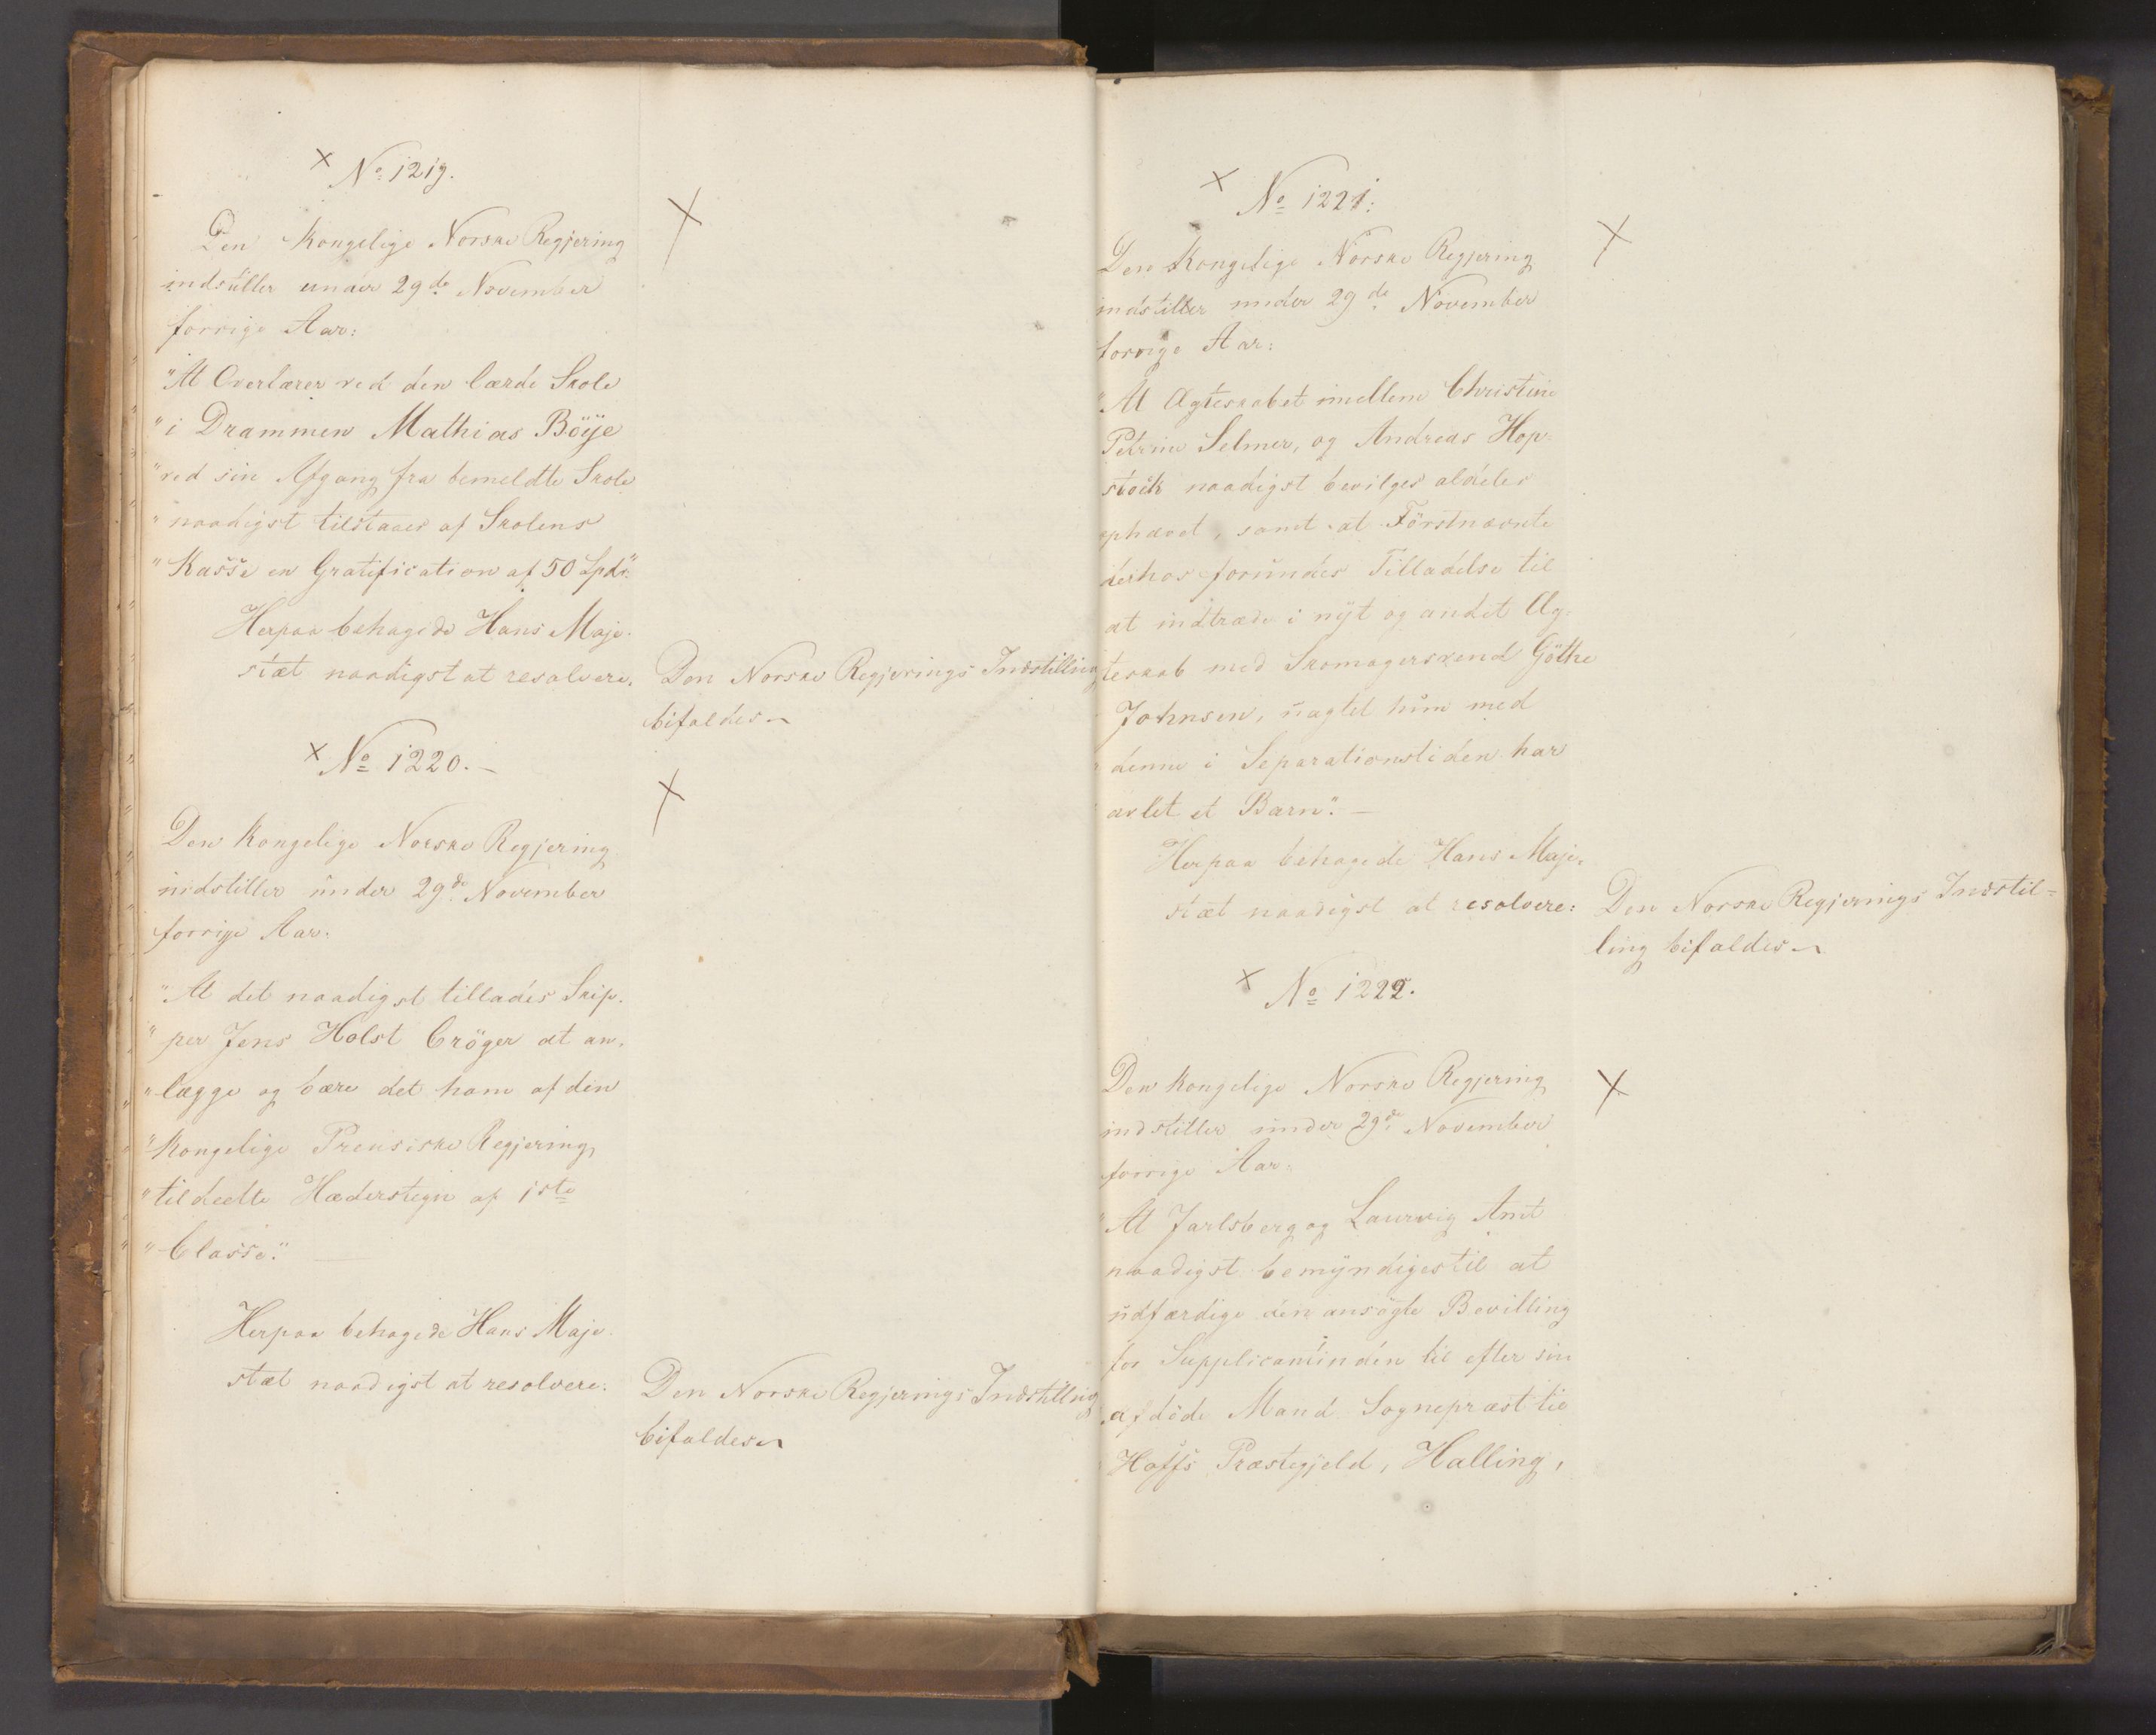 × No 1219.
Den Kongelige Norske Regjering
indstiller under 29de November
forrige Aar:
"At Overlærer ved den lærde Skole
"i Drammen Mathias Böÿe
"ved sin Afgang fra bemeldte Skole
"naadigst tilstaaes af Skolens
"Kasse en Gratification af 50 Spdr."
Herpaa behagede Hans Maje-
stæt naadigst at resolvere.
Den Norske Regjerings Indstilling
bifaldes
× No 1220. -
Den Kongelige Norske Regjering
indstiller under 29de November
forrige Aar:
"At det naadigst tillades Skip-
"per Jens Holst Cröger at an-
"lægge og bære det ham af den
"Kongelige Preusiske Regjering
"tildeelte Hæderstegn af 1ste
"Classe." —
Herpaa behagede Hans Maje-
stæt naadigst at resolvere:
Den Norske Regjerings Indstilling
bifaldes
× No 1221:
Den Kongelige Norske Regjering
indstiller under 29de November
forrige Aar:
"At Ægteskabet imellem Christine
Petrine Selmer, og Andreas Hop-
stock naadigst bevilges aldeles
ophævet, samt at Förstnævnte
derhos forundes Tilladelse til
at indtræde i nÿt og andet Æg-
teskab med Skomagersvend Göthe
Johnsen, uagtet hun med
"denne i Separationstiden har
avlet et Barn". —
Herpaa behagede Hans Maje-
stæt naadigst at resolvere:
Den Norske Regjerings Indstil=
ling bifaldes
× No 1222.
Den Kongelige Norske Regjering
indstiller under 29de November
forrige Aar:
"At Jarlsberg og Laurvig Amt
naadigst bemÿndiges til at
udfærdige den ansögte Bevilling
for Supplicantinden til efter sin
afdöde Mand Sognepræst til
Hoffs Præstegjeld, Halling,